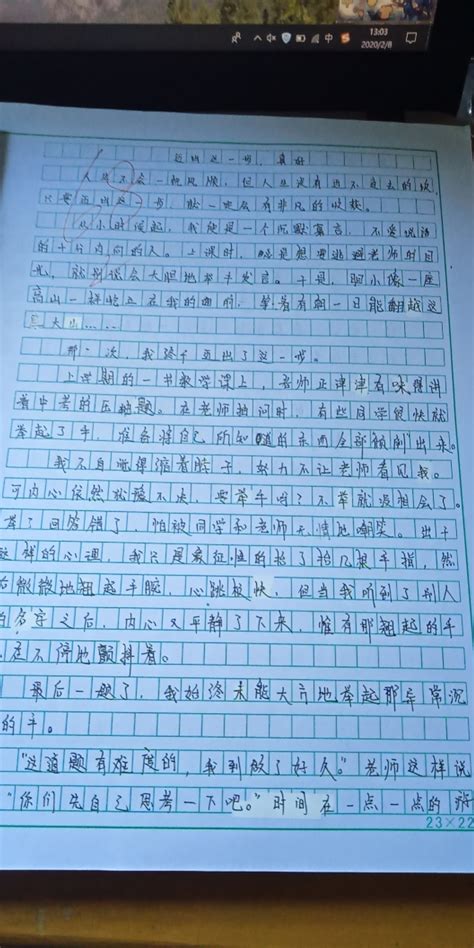 13:03
中
2020/2/8
迈出这一步，真好
人生不会一帆风顺，但人生没有过不去的坎，
只要迈出这一步，就一定会有非凡的收获。
从小时候起，我便是一个沉默寡言，不爱说话
的十分内向的人。上课时，总是想要逃避老师的目
光，就别提会大胆地举手发言。于是，胆小像一座
高山一样屹立在我的面前，等着有朝一日能翻越这
大山……
那一次，我终于迈出了这一步。
上学期的一节数学课上，老师正津津有味得讲
着中考的压轴题。在老师提问时，有些同学很快就
举起了手，准备将自己所知道的东西全部倾倒出来。
我不自觉得缩着脖子，努力不让老师看见我。
可内心依然犹豫不决，要举手吗？不举就没机会了。
举了回答错了，怕被同学和老师无情地嘲笑。出于
这样的心理，我只是象征性的抬了抬几根手指，然
后微微地翘起手腕，心跳极快，但当我听到了别人
的名字之后，内心又平静了下来，惟有那翘起的手
在不停地颤抖着。
最后一题了，我始终未能大方地举起那异常沉
的手。
“这道题有难度的，我到做了好久。”老师这样说
“你们先自己思考一下吧。”时间在一点一点的
23×22